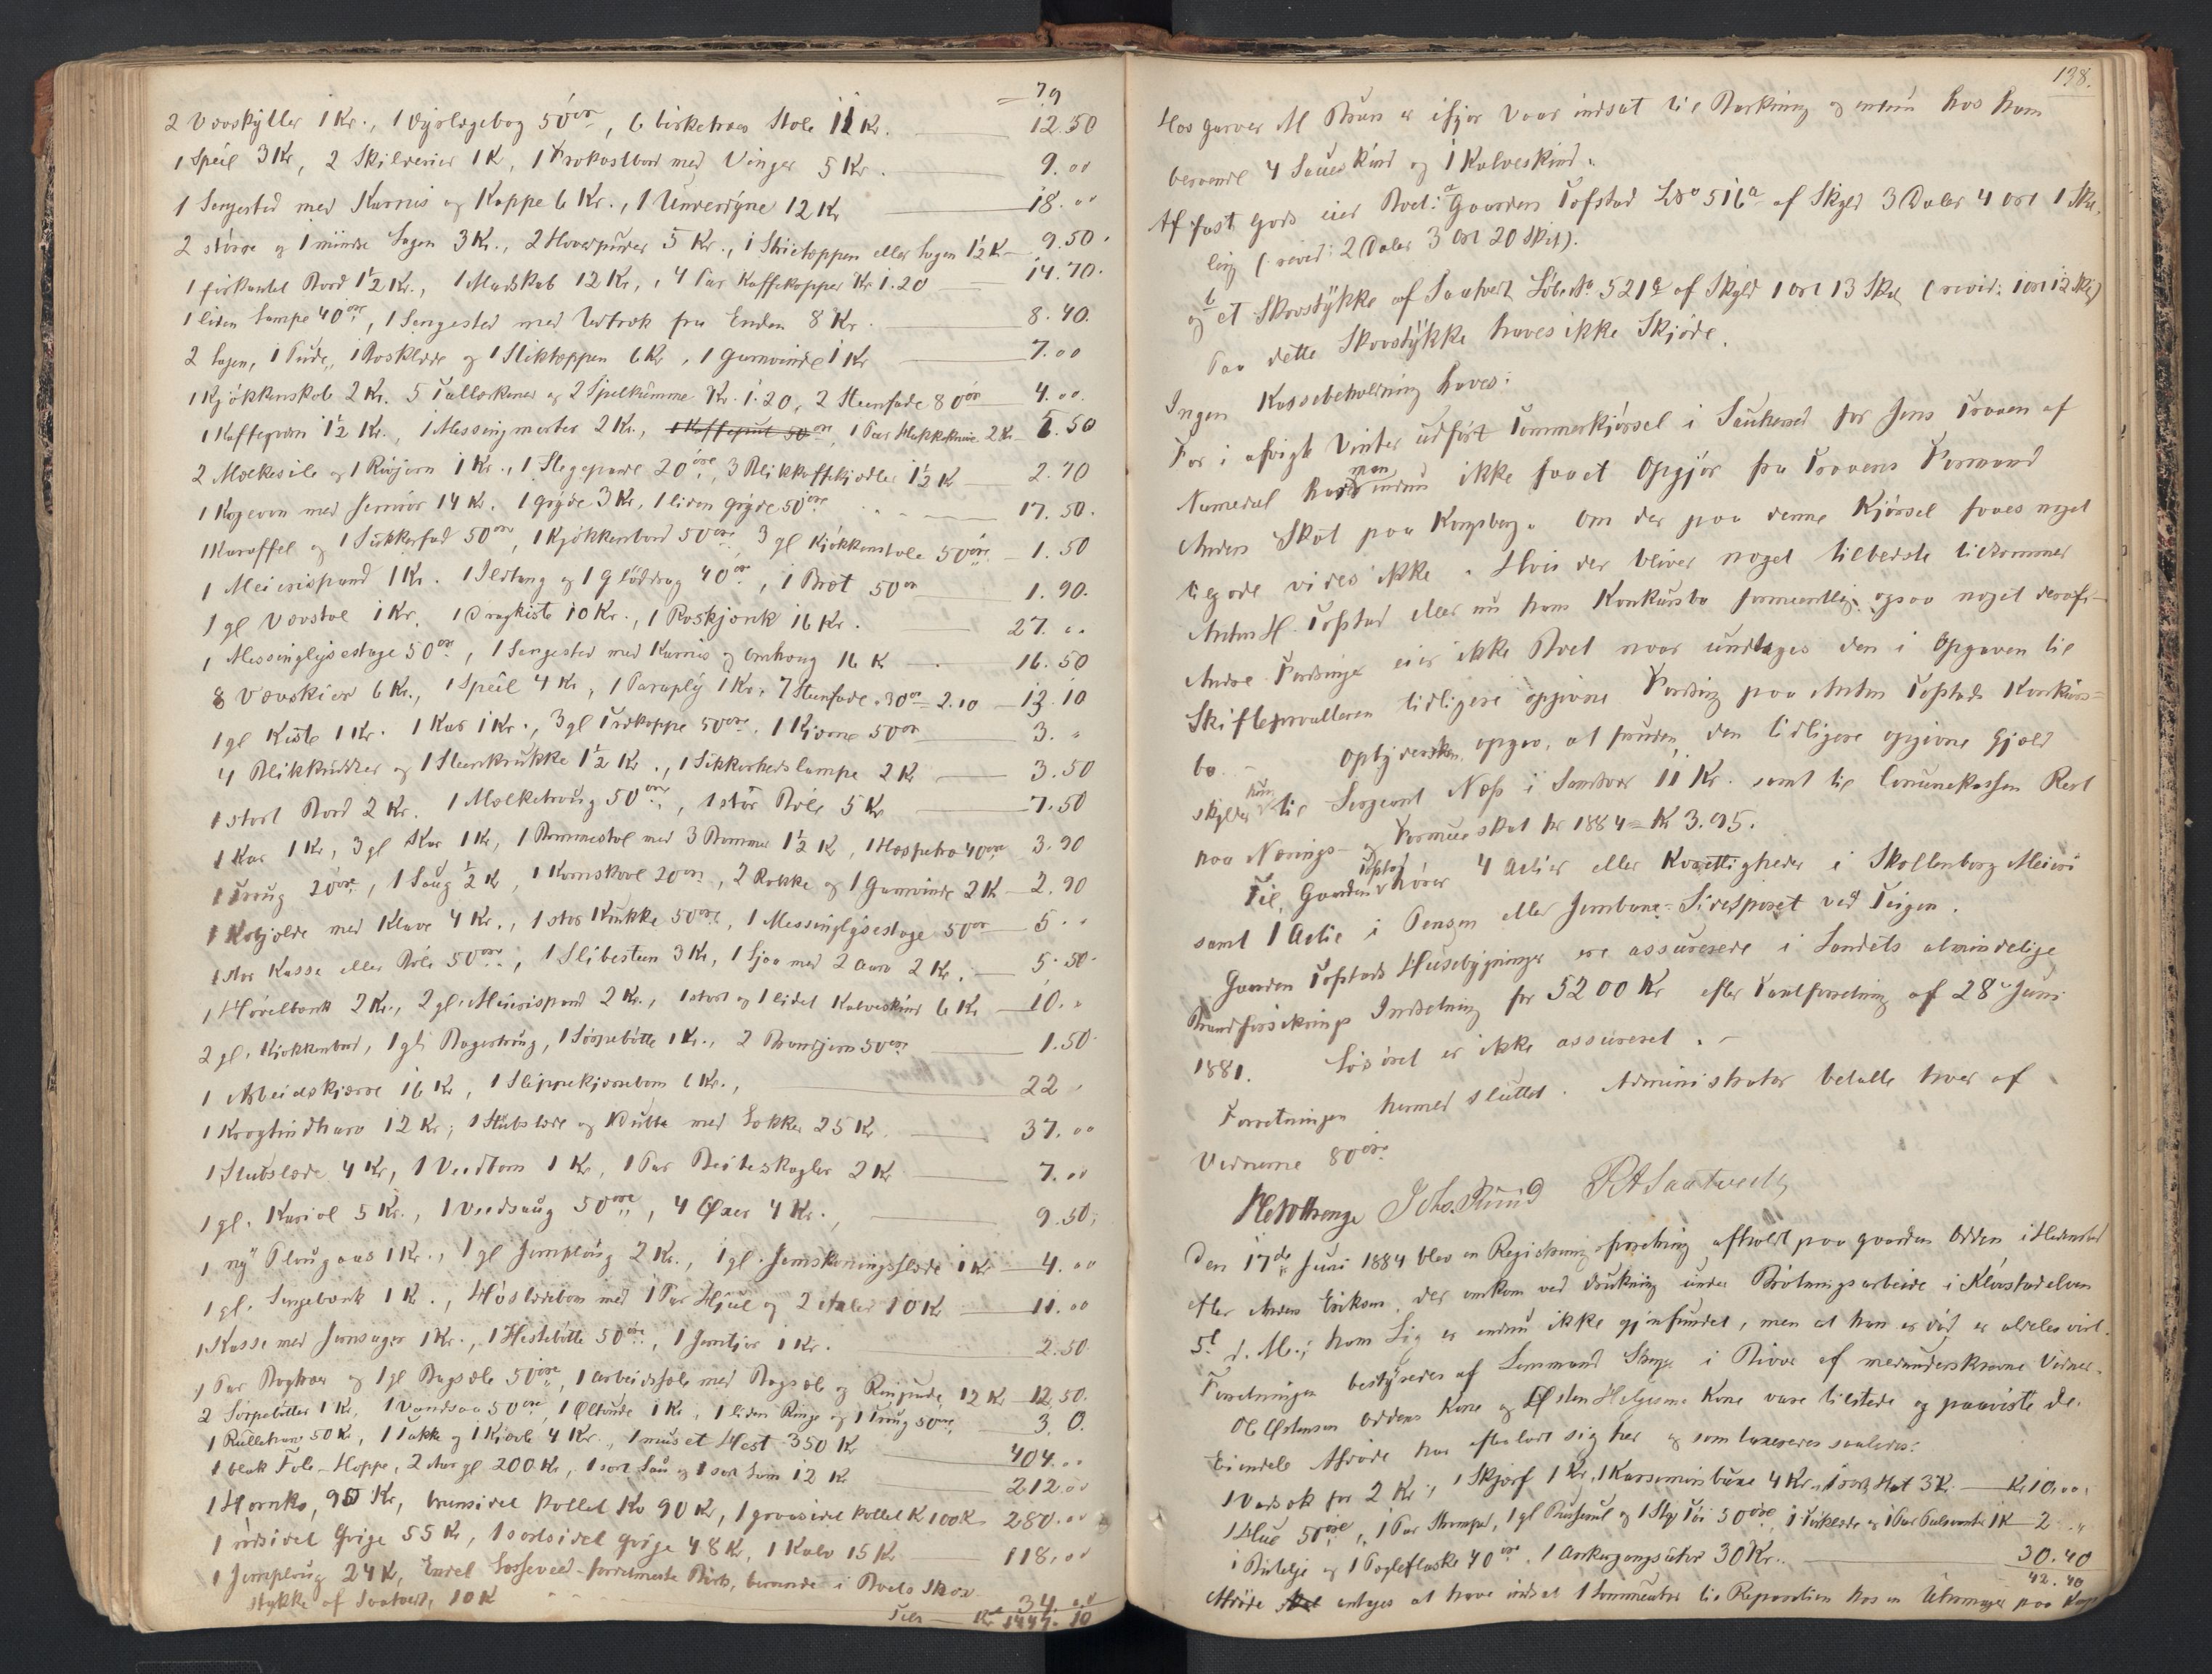 79
2 Vævskytler 1 Kr., 1 Dyrlægebog 50 øre, 6 birketræs Stole 11 Kr. 12.50
1 Speil 3 Kr, 2 Skilderier 1 K, 1 Frokostbord med Vinger 5 Kr. 9.00
1 Sengested med Karnis og Kappe 6 Kr., 1 Underdyne 12 Kr 18.00
2 større og 1 mindre Lagen 3 Kr., 2 Hovedpuder 5 Kr., 1 Strietæppen eller Lagen 1½ K 9.50
1 firkantet Bord 1½ Kr., 1 Madskab 12 Kr., 4 Par Kaffekopper Kr 1.20 14.70
1 liden Lampe 40 øre, 1 Sengested med Udtræk fra Enden 8 Kr. 8.40
2 Lagen, 1 Pude, 1 og 1 Stiktæppen 6 Kr, 1 Garnvinde 1 Kr 7.00
1 Kjøkkenskab 2 Kr. 5 Tallerkener og 2 Spelkumme Kr. 1.20, 2 Steenfade 80 ør 4.00
1 Kaffekværn 1½ Kr., 1 Messingmorter 2 Kr., 1 Par Hakkeknive 2 Kr 5.50
2 Melkesile og 1 Rivjern 1 Kr., 1 Stegepande 20 øre, 3 Blikkaffekjedler 1½ K 2.70
1 Kogeovn med Jernrør 14 Kr. 1 Gryde 3 Kr, 1 liden Gryde 50 øre 17.50
1 Karaffel og 1 Sukkerfad 50 øre, 1 Kjøkkenbord 50 øre, 3 gl Kjøkkenstole 50 øre 1.50
1 Meierispand 1 Kr. 1 Ildtang og 1 Gløddrag 40 øre, 1 Bræt 50 ør 1.90
1 gl Vævstol 1 Kr. 1 Dragkiste 10 Kr., 1 16 Kr. 27.
1 Messinglysestage 50 øre, 1 Sengested med Karnis og Omhæng 16 K 16.50
8 Vævskier 6 Kr., 1 Speil 4 Kr, 1 Paraply 1 Kr, 7 Steenfade 30 øre = 2.10 13.10
1 gl Kiste 1 Kr. 1 Kar 1 Kr., 3 gl 50 øre, 1 Kjerne 50 øre 3.
4 Blikbøtter og 1 Steenkrukke 1½ Kr., 1 Sikkerhedslampe 2 Kr 3.50
1 stort Bord 2 Kr. 1 Melketraug 50 øre, 1 stor Bøle 5 Kr 7.50
1 Kar 1 Kr, 3 gl Kar 1 Kr, 1 Trommestol med 3 Trommer 1½ Kr, 1 Hespetræ 40 øre 3.90
1 Traug 20 øre, 1 Saug ½ K, 1 Kornskovl 20 øre, 2 Rokke og 1 Garnvinde 2 K 2.90
1 Kobjelde med Klave 4 Kr., 1 stor Krukke 50 øre, 1 Messinglysestage 50 øre 5.
1 stor Kasse eller Bøle 50 øre, 1 Slibesteen 3 Kr, 1 Ljaa med 2 2 Kr. 5.50
1 Høvelbænk 2 Kr., 2 gl. Meierispand 2 Kr., 1 stort og 1 lidet Kalveskind 6 Kr 10.
2 gl. Kjøkkenbord, 1 gl Bagertraug, 1 Sørpebøtte 1 Kr., 2 Brændjern 50 øre 1.50
1 Arbeidskjærre 16 Kr, 1 Slippekjærrebom 6 Kr., 22
1 Krogtindharv 12 Kr; 1 Stubslæde og Bukk med Lækker 25 Kr. 37.00
1 Stubslæde 4 Kr, 1 Veedlom 1 Kr, 1 Par Beiteskagler 2 Kr 7.00
1 gl. Kariol 5 Kr., 1 Veedsaug 50 øre, 4 Øxer 4 Kr. 9.50
1 ny Plougaas 1 Kr., 1 gl Jernploug 2 Kr., 1 gl. Jernskoningsslæde 1 Kr 4.00
1 gl. Sengebænk 1 Kr., Høslædebom med 1 Par Hjul og 2 10 Kr 11.00
1 Kasse med Jernsager 1 Kr., 1 Hestebøtte 50 øre, 1 Jerntjor 1 Kr. 2.50
1 Par Bogtræer og 1 gl Bagsele 50 øre, 1 Arbeidssele med Bagsele og Ringpude 12 Kr 12.50
2 Sørpebøtter 1 Kr, 1 Vandsaa 50 øre, 1 Øltønde 1 Kr, 1 liden Ringe og 1 Traug 50 øre 3.0
1 Rulletræ 50 K, 1 Takke og 1 Kjævle 4 Kr., 1 muset Hest 350 Kr 404.
1 blak Fole-Hoppe, 2 Aar gl 200 Kr, 1 sort Sau og 1 sort Lam 12 K 212.00
1 Hornko, 90 Kr, brunsidet kollet Ko 90 Kr, 1 graasidet kollet K 100 K 280.00
1 rødsidet Qvige 55 Kr, 1 sortsidet Qvige 48 K, 1 Kalv 15 Kr 118.00
1 Jernploug 24 K, Endel Losseved - Birk, beroende i Boets Skov
stykke af Saatvedt, 10 K 34.00
Til Kr 1447.10
138.
Hos Garver M Bruu er ifjor Vaar indsat til Barkning og endnu hos ham
beroende 4 Saueskind og 1 Kalveskind.
Af fast Gods eier Boet: a Gaarden Tofstad Lb No 516a af Skyld 3 Daler 4 Ort 1 Skil-
ling (revid: 2 Daler 3 Ort 20 Skil).
og b et Skovstykke af Saatvedt Løbe No 521 af Skyld 1 Ort 13 Skil (revid: 1 Ort 12 Skil)
Paa dette Skovstykke haves ikke Skjøde.
Ingen Kassebeholdning haves:
For i afvigte Vinter udført Tømmerkjørsel i Sauherad for Jens Traaen af
Numedal har man endnu ikke faaet Opgjør fra Traaens Formand
Anders Skot paa Kongsberg. Om der paa denne Kjørsel faaes noget
tilgode vides ikke. Hvis der bliver noget tilbedste tilkommer
Anton H. Tofstad eller nu hans Konkursbo formentlig ogsaa noget deraf.
Andre Fordringer eier ikke Boet naar undtages den i Opgaven til
Skifteforvalteren tidligere opgivne Fordring paa Anton Tofstads Konkurs-
bo. - Opbydersken opgav, at foruden den tidligere opgivne Gjæld
skylder hun til Sergeant Næss i Sandsvær 11 Kr. samt til Communekassen Rest
paa Nærings- og Formueskat for 1884 = Kr 3.95.
Til Gaarden Tofstad hører 4 Actier eller Korettigheder i Skollenborg Meieri
samt 1 Actie i Pensen eller Jernbane-Sidesporet ved Teigen.
Gaarden Tofstads Husebygninger ere assurerede i Landets almindelige
Brandforsikrings Indretning for 5200 Kr efter Taxtforretning af 28 Juni
1881. Løsøret er ikke assureret. -
Forretningen hermed sluttet. Administrator betalte hver af
Vidnerne 80 øre.
Joh. Ruud P A Saatvedt
Den 17de Juni 1884 blev en Registreringsforretning afholdt paa Gaarden Odden i Hedenstad
efter Anders Eriksen, der omkom ved Drukning under Brøtningsarbeide i Kløvstadelven
5t d. M.; hans Lig er endnu ikke gjenfundet, men at han er død er aldeles vist.
Forretningen bestyredes af Lensmand Skenge i Bivær af medunderskrevne Vidner.
Ole Østensen Oddens Kone og Østen Helgesens Kone vare tilstede og paaviste de
Eiendele Afdøde har efterladt sig her og som taxeres saaledes:
1 Vadsæk for 2 Kr; 1 Skjærf 1 Kr, 1 buxe 4 Kr., 1 sort Hat 3 K. Kr 10.00
1 Hue 50 øre, 1 Par Strømper, 1 gl og 1 Tøi 50 øre, 1 Tørklæde og 1 Par 1 K 2.
1 Butelje og 1 Pægleflaske 40 øre, 1 Ankergangsuhr 30 Kr. 30.40
42.40
Afdøde antages at have indsat 1 Lommeuhr til Reparation hos en Uhrmager paa Kong